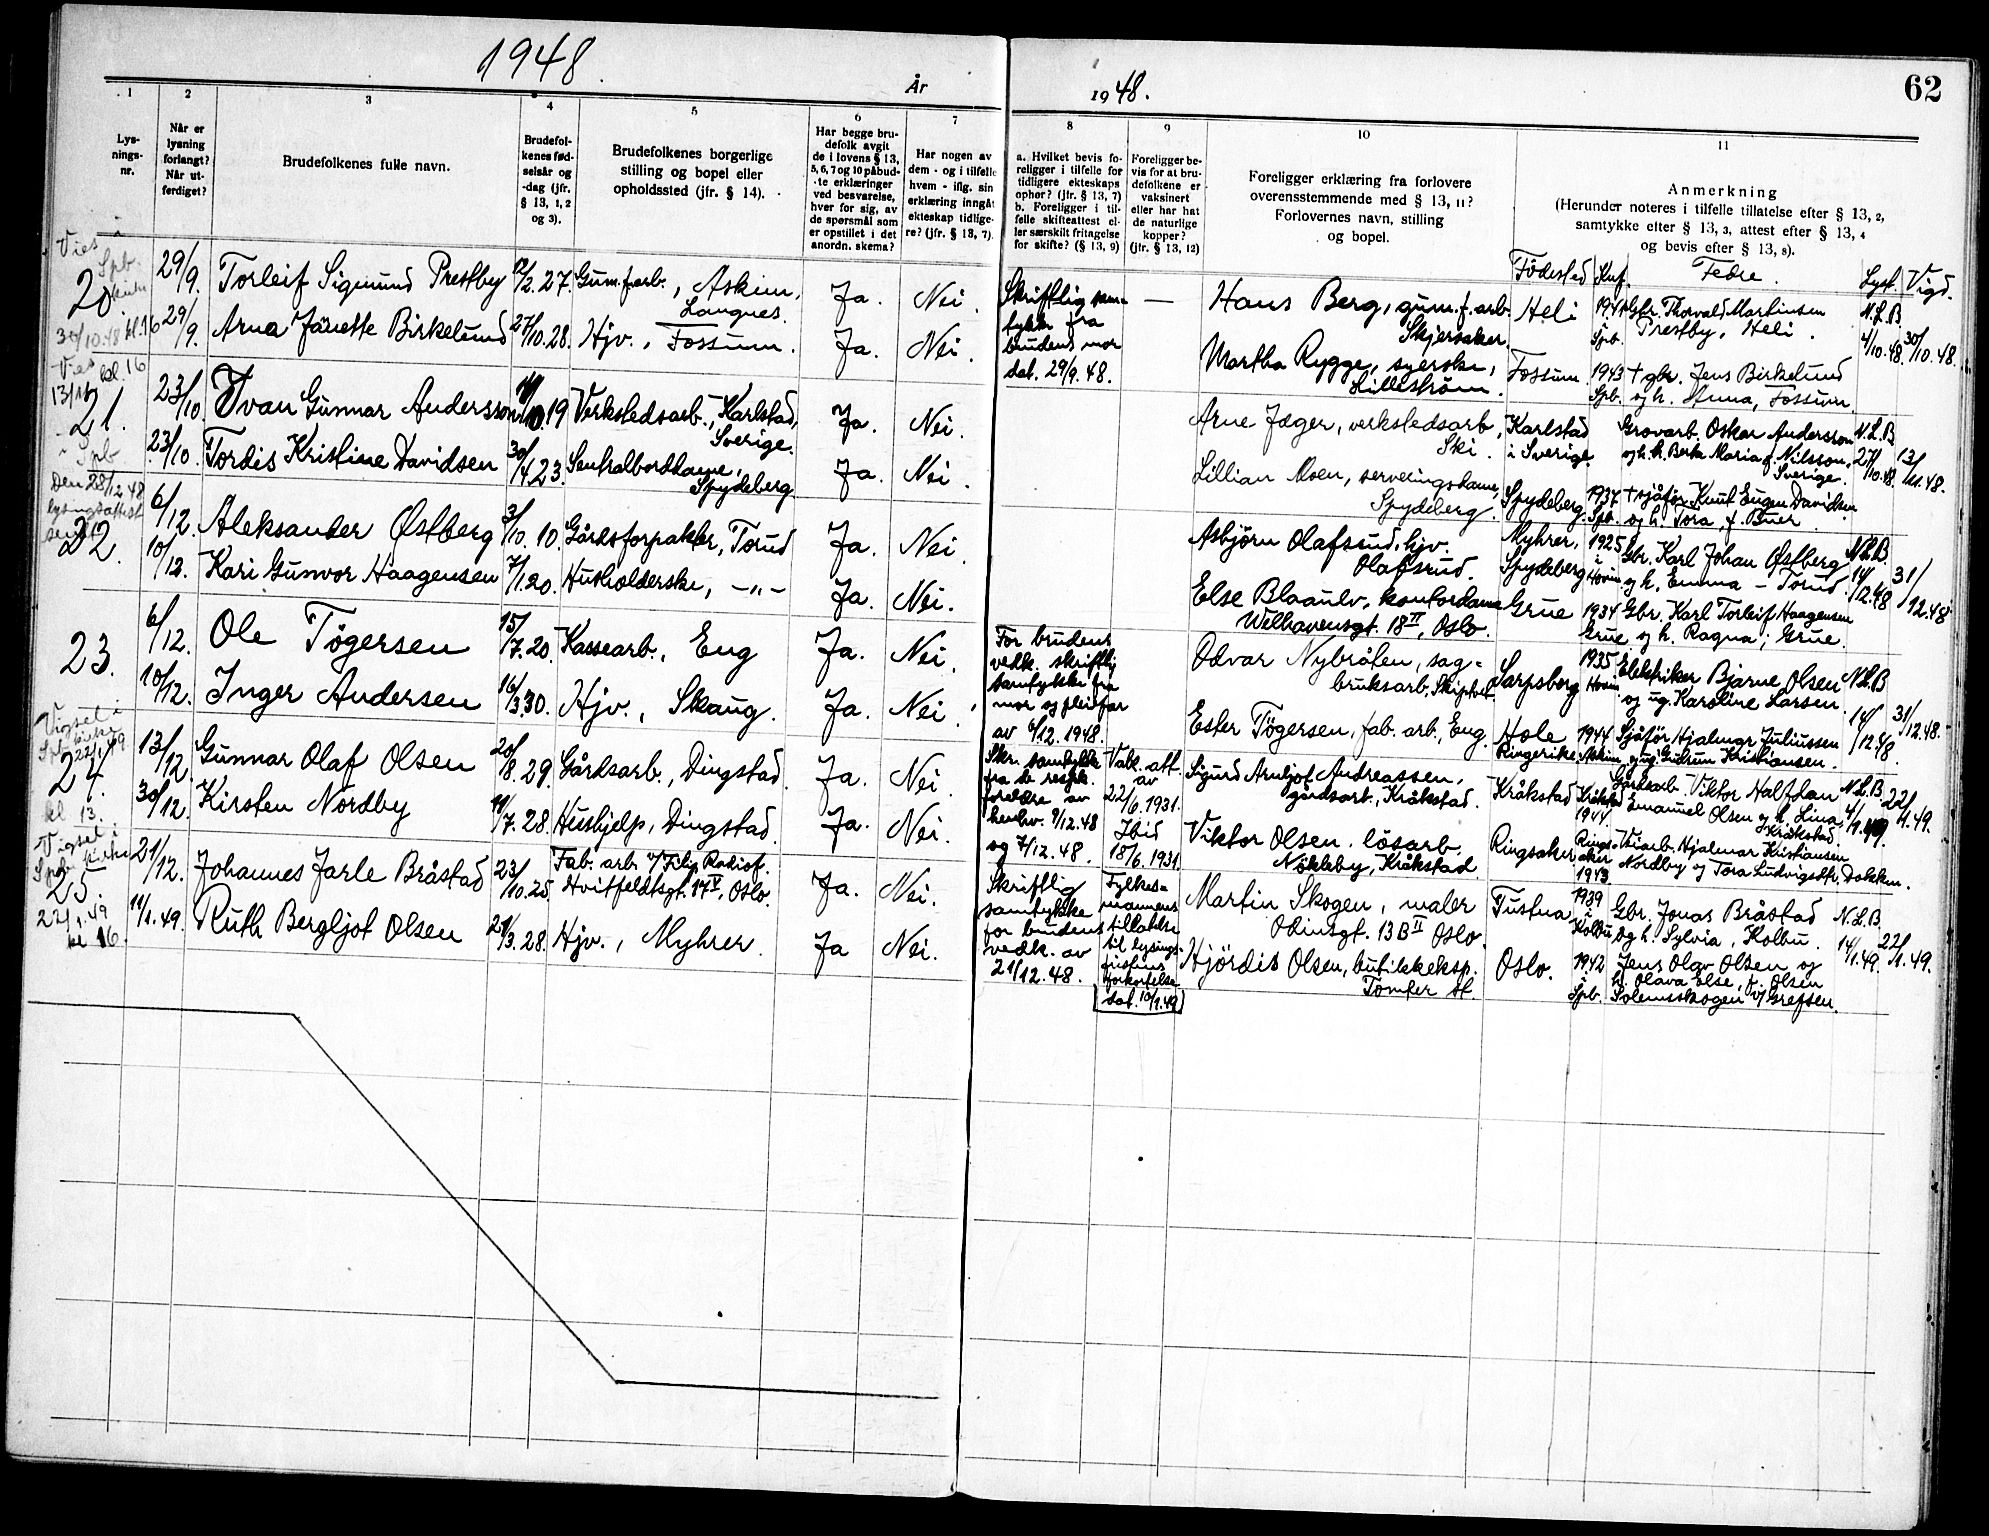 1948.
År
1948.
62
1
2
3
4
5
6
7
8
9
10
11
Lys-
nings-
nr.
Når er
lysning
forlangt?
Når ut-
ferdiget?
Brudefolkenes fulle navn.
Brudefol-
kenes fød-
selsår og
-dag (jfr.
§ 13, 1, 2
og 3).
Brudefolkenes borgerlige
stilling og bopel eller
opholdssted (jfr. § 14).
Har begge bru-
defolk avgit
de i lovens § 13,
5, 6, 7 og 10 påbud-
te erklæringer
ved besvarelse,
hver for sig, av
de spørsmål som
er opstillet i det
anordn. skema?
Har nogen av
dem - og i tilfelle
hvem - iflg. sin
erklæring inngåt
ekteskap tidlige-
re? (jfr. § 13, 7).
a. Hvilket bevis fo-
religger i tilfelle for
tidligere ekteskaps
ophør? (jfr. § 13, 7)
b. Foreligger i til-
felle skifteattest el-
ler særskilt fritagelse
for skifte? (§ 13, 9)
Foreligger be-
vis for at bru-
defolkene er
vaksinert
eller har hat
de naturlige
kopper?
(jfr. § 13, 12)
Foreligger erklæring fra forlovere
overensstemmende med § 13, 11?
Forlovernes navn, stilling
og bopel.
Anmerkning
(Herunder noteres i tilfelle tillatelse efter § 13, 2,
samtykke efter § 13, 3, attest efter § 13, 4
og bevis efter § 13, 8).
Fødested
Knf.
Fedre.
Lyst.
Vigd.
Vies i
Spb.
kirke
20.
30/10.48 kl. 16
29/9. Torleif Sigmund Prestby 12/2.27. Gum.f.arb., Askim, Ja. Nei.
Langnes.
29/9. Arna Jänette Birkelund 27/10.28. Hjv., Fossum. Ja. Nei.
Skriftlig sam-
tykke fra
brudens mor
dat. 29/9.48.
—
Hans Berg, gum.f.arb.
Skjersaker.
Martha Rygge, syerske,
Lillestrøm.
Heli 1941 Spb. Gbr. Thorvald Martinsen
Prestby, Heli.
N.L.B. 4/10.48 30/10.48.
Fossum. 1943 Spb. † gbr. Jens Birkelund
og h. Anna, Fossum.
Vies
13/11 kl. 16
21.
i Spb
23/10. Ivan Gunnar Andersson 10.19 Verkstedsarb., Karlstad, Ja. Nei.
Sverige.
23/10. Tordis Kristine Davidsen 30/4.23. Sentralborddame, Ja. Nei.
Spydeberg
Arne Jæger, verkstedsarb.,
Ski.
Lillian Moen, serveringsdame,
Spydeberg.
Karlstad
i Sverige.
Grovarb. Oskar Andersson
og h. h. Berta Maria f. Nilsson,
Sverige.
N.L.B 27/10.48. 13/11.48.
Spydeberg. 1937 Spb. † sjåfør Knut Eugen Davidsen
og h. Tora, f. Buer.
Den 28/12 48
lysingsattest
sendt
22.
6/12. Aleksander Østberg 3/10.10. Gårdsforpakter, Torud Ja. Nei.
10/12. Kari Gunvor Haagensen 7/1.20. Husholderske, —„— Ja. Nei.
Asbjørn Olafsrud, hjv.
Olafsrud.
Else Blaaulv, kontordame
Welhavensgt. 18 II, Oslo.
Myhrer,
Spydeberg
1925
i
Hovin
Gbr. Karl Johan Østberg
og h. Emma – Torud.
N.L.B 14/12.48 31/12.48
Grue 1934 Grue Gbr. Karl Torleif Haagensen
og h. Ragna, Grue.
23.
6/12. Ole Tøgersen 15/7.20. Kassearb., Eng Ja. Nei.
10/12. Inger Andersen 16/3.30. Hjv., Skaug. Ja. Nei.
For brudens
vedk. skriftlig
samtykke fra
mor og pleiefar
av 6/12.1948.
Odvar Nybråten, sag-
bruksarb. Skiptvet.
Ester Tøgersen, fab. arb., Eng.
Sarpsberg 1935 Hovin Elektriker Bjarne Olsen
og ug. Karoline Larsen.
N.L.B 14/12.48. 31/12.48.
Hole
Ringerike.
1944 Askim Sjåfør Hjalmar Juliussen
og ug. Gudrun Kristiansen.
Vigsel i
Spb. kirke
22/1.49
24.
kl 13.
13/12. Gunnar Olaf Olsen 20/8.29. Gårdsarb., Dingstad. Ja. Nei.
30/12. Kirsten Nordby 11/7.28. Hushjelp, Dingstad. Ja. Nei.
Skr. samtykke
fra de resp.
foreldre av
henhv. 9/12.48
og 7/12.48.
Vak. att.
av
22/6.1931.
Ibid
18/6.1931.
Sigurd Arnljot Andreassen,
gårdsarb., Kråkstad.
Viktor Olsen, løsarb.
Nøkleby, Kråkstad.
Kråkstad Kråkstad 1944 Gårdsarb. Viktor Halfdan
Emanuel Olsen og h. Lina
Kråkstad.
N.L.B 4/1.49. 22/1.49.
Ringsaker Rings-
aker
1943 Hjalmar Kristiansen
Nordby og Tora Ludvigsdtr. Dokken.
Vigsel i
Spb. kirke
25.
22/1.49
kl 16.
21/12. Johannes Jarle Bråstad 23/10.25. Fab. arb. v/ Filip Radiof. Ja. Nei.
Hvitfeldtsgt. 17 V, Oslo.
11/1.49. Ruth Bergljot Olsen 21/3.28. Hjv., Myhrer. Ja Nei.
Skriftlig
samtykke
for brudens
vedk. av
21/12.48.
Fylkes-
mannens
tillatelse
til lysings-
fristens
forkortelse
dat. 10/1.49
Martin Skogen, maler
Odinsgt. 13 B II Oslo.
Hjørdis Olsen, butikkeksp.
Tomter st.
Tustna 1939
i
Kolbu Gbr. Jonas Bråstad
og h. Sylvia, Kolbu.
N.L.B. 14/1.49. 22/1.49.
Oslo. 1942
i
Spb. Jens Olav Olsen og
h. Olava Else, f. Olsen
Solemsskogen v/ Grefsen.